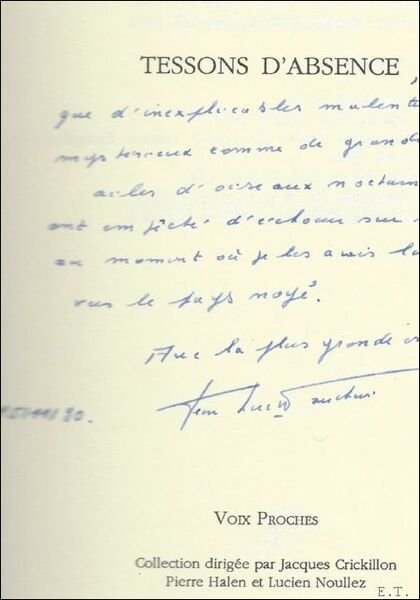 TESSONS D'ABSENCE
que d'inexplicables malent
mystérieux comme de grand
ailes d'oiseaux nocturn
ont empêché d'échouer sur
au moment où je les avais la
vers le pays noyé.
Avec la plus grande
Jean Luc
80.
VOIX PROCHES
Collection dirigée par Jacques Crickillon
Pierre Halen et Lucien Noullez
E.T.